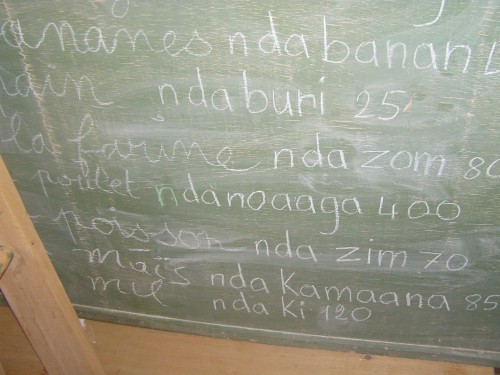 ananes nda banan
pain nda buri 25
la farine nda zom 80
poulet nda noaaga 400
poisson nda zim 70
maïs nda Kamaana 85
mil nda Ki 120